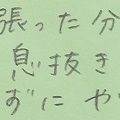 張った分
息抜き
ずにや